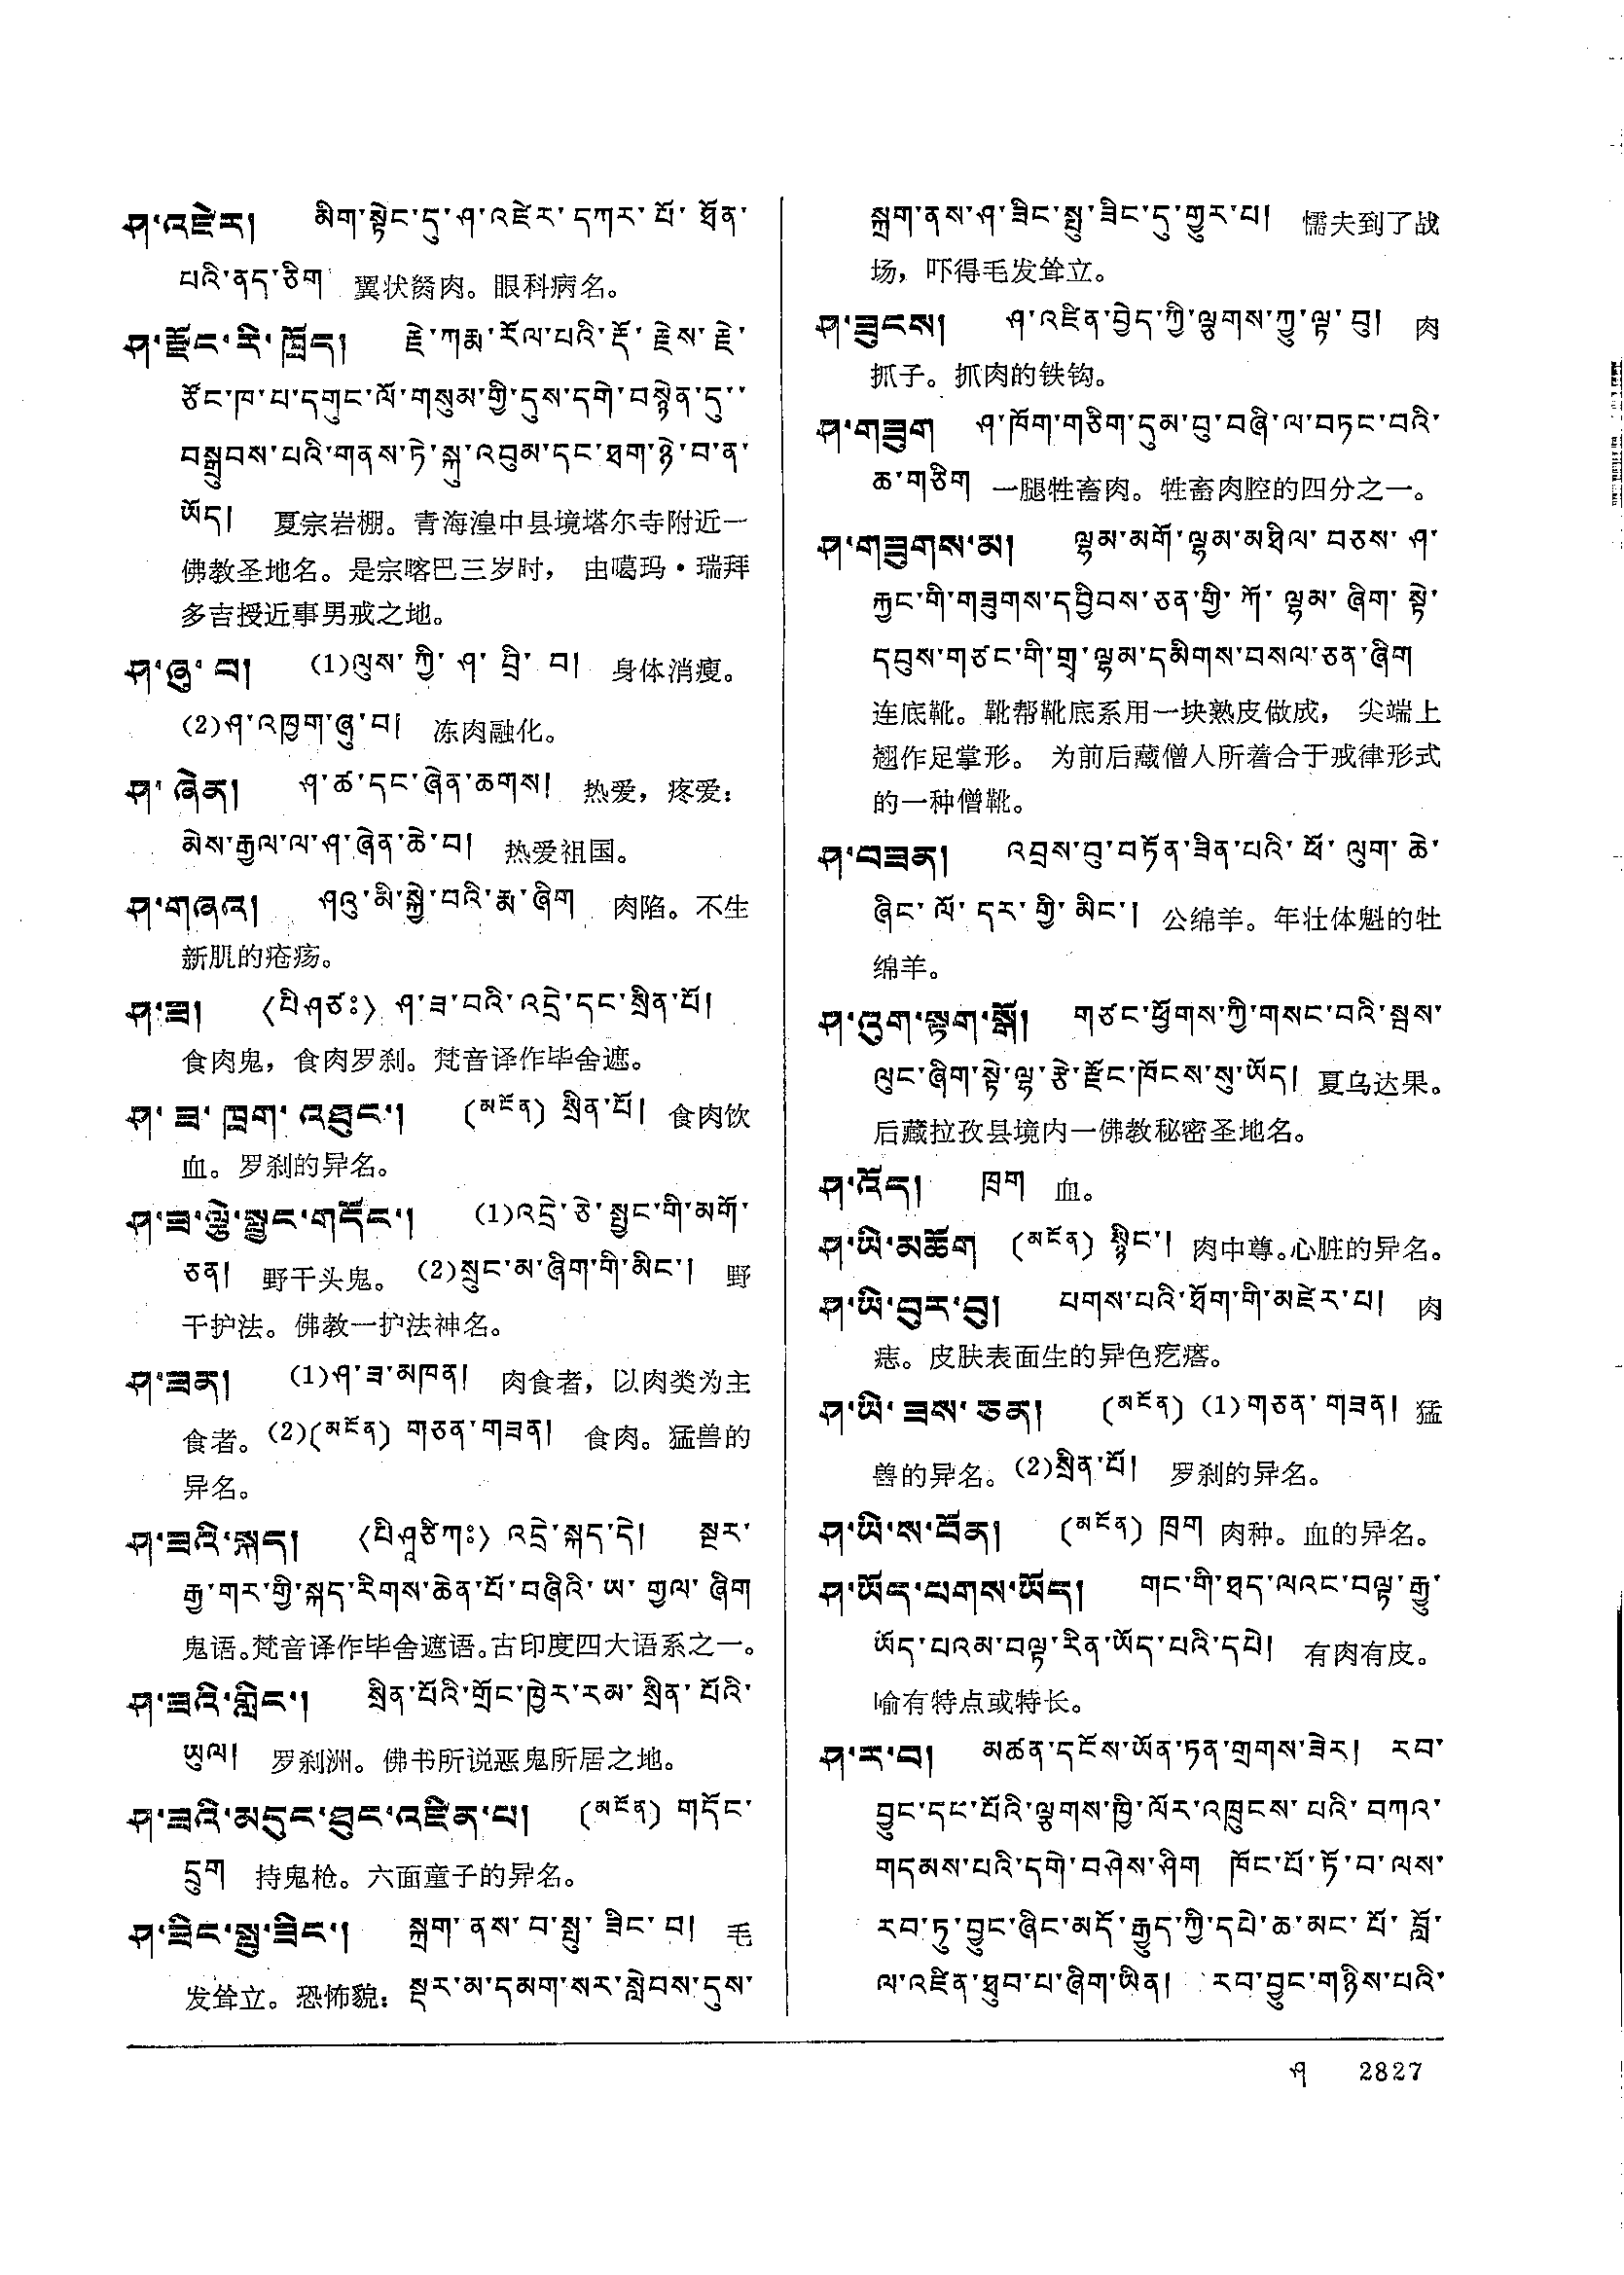 ཤ་འཛེར། མིག་སྟེང་དུ་ཤ་འཛེར་དཀར་པོ་ཐོན་
པའི་ནད་ཅིག 翼状胬肉。眼科病名。
ཤ་རྫོང་རི་ཁྲོད། རྗེ་ཀརྨ་རོལ་པའི་རྡོ་རྗེས་རྗེ་
ཙོང་ཁ་པ་དགུང་ལོ་གསུམ་གྱི་དུས་དགེ་བསྙེན་དུ་
བསྒྲུབས་པའི་གནས་ཏེ་སྐུ་འབུམ་དང་ཐག་ཉེ་བ་ན་
ཡོད། 夏宗岩棚。青海湟中县境塔尔寺附近一
佛教圣地名。是宗喀巴三岁时，由噶玛·瑞拜
多吉授近事男戒之地。
ཤ་ཞུ་བ། (1)ལུས་ཀྱི་ཤ་བྲི་བ། 身体消瘦。
(2)ཤ་འཁྱག་ཞུ་བ། 冻肉融化。
ཤ་ཞེན། ཤ་ཚ་དང་ཞེན་ཆགས། 热爱，疼爱：
མེས་རྒྱལ་ལ་ཤ་ཞེན་ཆེ་བ། 热爱祖国。
ཤ་གཞའ། ཤའུ་མི་སྐྱེ་བའི་རྨ་ཞིག 肉陷。不生
新肌的疮疡。
ཤ་ཟ། 〈པིཤཙཿ〉 ཤ་ཟ་བའི་འདྲེ་དང་སྲིན་པོ།
食肉鬼，食肉罗刹。梵音译作毕舍遮。
ཤ་ཟ་ཁྲག་འཐུང་། (མངོན) སྲིན་པོ། 食肉饮
血。罗刹的异名。
ཤ་ཟ་ལྕེ་སྤྱང་གདོང་། (1)འདྲེ་ཅེ་སྤྱང་གི་མགོ་
ཅན། 野干头鬼。(2)སྲུང་མ་ཞིག་གི་མིང་། 野
干护法。佛教一护法神名。
ཤ་ཟན། (1)ཤ་ཟ་མཁན། 肉食者，以肉类为主
食者。(2)(མངོན) གཅན་གཟན། 食肉。猛兽的
异名。
ཤ་ཟའི་སྐད། 〈པིཤཱཙིཀཿ〉 འདྲེ་སྐད་དེ། སྔར་
རྒྱ་གར་གྱི་སྐད་རིགས་ཆེན་པོ་བཞིའི་ཨ་གྱལ་ཞིག
鬼语。梵音译作毕舍遮语。古印度四大语系之一。
ཤ་ཟའི་གླིང་། སྲིན་པོའི་གྲོང་ཁྱེར་རམ་སྲིན་པོའི་
ཡུལ། 罗刹洲。佛书所说恶鬼所居之地。
ཤ་ཟའི་མདུང་ཐུང་འཛིན་པ། (མངོན) གདོང་
དྲུག 持鬼枪。六面童子的异名。
ཤ་ཟིང་སྤུ་ཟིང་། སྐྲག་ནས་བ་སྤུ་ཟིང་བ། 毛
发耸立。恐怖貌：སྡར་མ་དམག་སར་སླེབས་དུས་
སྐྲག་ནས་ཤ་ཟིང་སྤུ་ཟིང་དུ་གྱུར་པ། 懦夫到了战
场，吓得毛发耸立。
ཤ་ཟུངས། ཤ་འཛིན་བྱེད་ཀྱི་ལྕགས་ཀྱུ་ལྟ་བུ། 肉
抓子。抓肉的铁钩。
ཤ་གཟུག ཤ་ཁོག་གཅིག་དུམ་བུ་བཞི་ལ་བཏང་བའི་
ཆ་གཅིག 一腿牲畜肉。牲畜肉腔的四分之一。
ཤ་གཟུགས་མ། ལྷམ་མགོ་ལྷམ་མཐིལ་བཅས་ཤ་
རྐྱང་གི་གཟུགས་དབྱིབས་ཅན་གྱི་ཀོ་ལྷམ་ཞིག་སྟེ་
དབུས་གཙང་གི་གྲྭ་ལྷམ་དམིགས་བསལ་ཅན་ཞིག
连底靴。靴帮靴底系用一块熟皮做成，尖端上
翘作足掌形。为前后藏僧人所着合于戒律形式
的一种僧靴。
ཤ་བཟན། འབྲས་བུ་བཏོན་ཟིན་པའི་ཕོ་ལུག་ཆེ་
ཞིང་ལོ་དར་གྱི་མིང་། 公绵羊。年壮体魁的牡
绵羊。
ཤ་འུག་སྟག་སྒོ། གཙང་ཕྱོགས་ཀྱི་གསང་བའི་སྦས་
ལུང་ཞིག་སྟེ་ལྷ་རྩེ་རྫོང་ཁོངས་སུ་ཡོད། 夏乌达果。
后藏拉孜县境内一佛教秘密圣地名。
ཤ་འོད། ཁྲག 血。
ཤ་ཡི་མཆོག (མངོན) སྙིང་། 肉中尊。心脏的异名。
ཤ་ཡི་བུར་བུ། པགས་པའི་ཐོག་གི་མཛེར་པ། 肉
痣。皮肤表面生的异色疙瘩。
ཤ་ཡི་ཟས་ཅན། (མངོན) (1)གཅན་གཟན། 猛
兽的异名。(2)སྲིན་པོ། 罗刹的异名。
ཤ་ཡི་ས་བོན། (མངོན) ཁྲག 肉种。血的异名。
ཤ་ཡོད་པགས་ཡོད། གང་གི་ཐད་ལའང་བལྟ་རྒྱུ་
ཡོད་པའམ་བལྟ་རིན་ཡོད་པའི་དཔེ། 有肉有皮。
喻有特点或特长。
ཤ་ར་བ། མཚན་དངོས་ཡོན་ཏན་གྲགས་ཟེར། རབ་
བྱུང་དང་པོའི་ལྕགས་ཁྱི་ལོར་འཁྲུངས་པའི་བཀའ་
གདམས་པའི་དགེ་བཤེས་ཤིག ཁོང་པོ་ཏོ་བ་ལས་
རབ་ཏུ་བྱུང་ཞིང་མདོ་རྒྱུད་ཀྱི་དཔེ་ཆ་མང་པོ་བློ་
ལ་འཛིན་ཐུབ་པ་ཞིག་ཡིན། རབ་བྱུང་གཉིས་པའི་
ཤ 2827